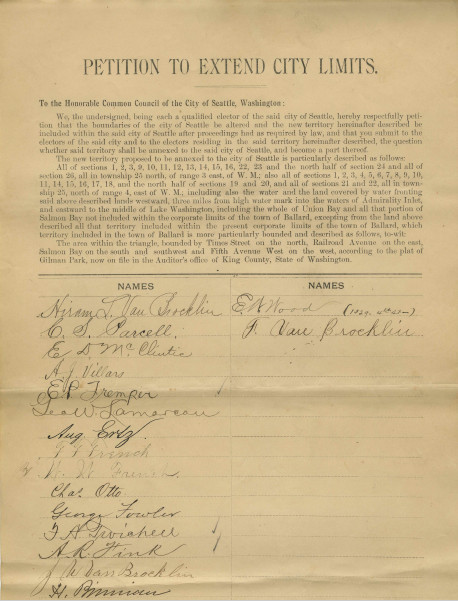 PETITION TO EXTEND CITY LIMITS.
To the Honorable Common Council of the City of Seattle, Washington:
We, the undersigned, being each a qualified elector of the said city of Seattle, hereby respectfully peti-
tion that the boundaries of the city of Seattle be altered and the new territory hereinafter described be
included within the said city of Seattle after proceedings had as required by law, and that you submit to the
electors of the said city and to the electors residing in the said territory hereinafter described, the question
whether said territory shall be annexed to the said city of Seattle, and become a part thereof.
The new territory proposed to be annexed to the city of Seattle is particularly described as follows:
All of sections 1, 2, 3, 9, 10, 11, 12, 13, 14, 15, 16, 22, 23 and the north half of section 24 and all of
section 26, all in township 25 north, of range 3 east, of W. M.; also all of sections 1, 2, 3, 4, 5, 6, 7, 8, 9, 10,
11, 14, 15, 16, 17, 18, and the north half of sections 19 and 20, and all of sections 21 and 22, all in town-
ship 25, north of range 4, east of W. M.; including also the water and the land covered by water fronting
said above described lands westward, three miles from high water mark into the waters of Admiralty Inlet,
and eastward to the middle of Lake Washington, including the whole of Union Bay and all that portion of
Salmon Bay not included within the corporate limits of the town of Ballard, excepting from the land above
described all that territory included within the present corporate limits of the town of Ballard, which
territory included in the town of Ballard is more particularly bounded and described as follows, to-wit:
The area within the triangle, bounded by Times Street on the north, Railroad Avenue on the east,
Salmon Bay on the south and southwest and Fifth Avenue West on the west, according to the plat of
Gilman Park, now on file in the Auditor's office of King County, State of Washington.
NAMES
Hiram T. Van Brocklin
C. S. Parcell.
E D. McClintic
A. J. Villars
E P Tremper
Geo W. Lamoreau
Aug. Ertz.
French
W. W. French
Chas. Otto
George Fowler
F. A. Twichell
A. R. Fink
J. W Van Brocklin
H. Binnian
NAMES
E. A. Wood
F Van Brocklin